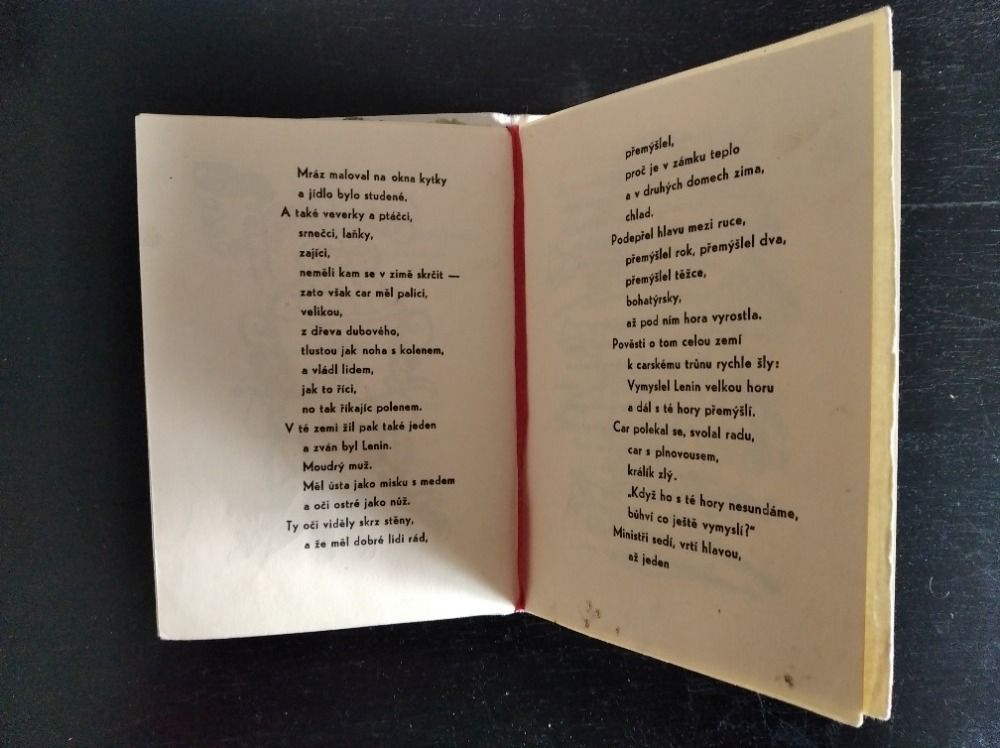 Mráz maloval na okna kytky
a jídlo bylo studené.
A také veverky a ptáčci,
srnečci, laňky,
zajíci,
neměli kam se v zimě skrčit —
zato však car měl palici,
velikou,
z dřeva dubového,
tlustou jak noha s kolenem,
a vládl lidem,
jak to říci,
no tak říkajíc polenem.
V té zemi žil pak také jeden
a zván byl Lenin.
Moudrý muž.
Měl ústa jako misku s medem
a oči ostré jako nůž.
Ty oči viděly skrz stěny,
a že měl dobré lidi rád,
přemýšlel,
proč je v zámku teplo
a v druhých domech zima,
chlad.
Podepřel hlavu mezi ruce,
přemýšlel rok, přemýšlel dva,
přemýšlel těžce,
bohatýrsky,
až pod ním hora vyrostla.
Pověsti o tom celou zemí
k carskému trůnu rychle šly:
Vymyslel Lenin velkou horu
a dál s té hory přemýšlí.
Car polekal se, svolal radu,
car s plnovousem,
králík zlý.
„Když ho s té hory nesundáme,
bůhví co ještě vymyslí?“
Ministři sedí, vrtí hlavou,
až jeden